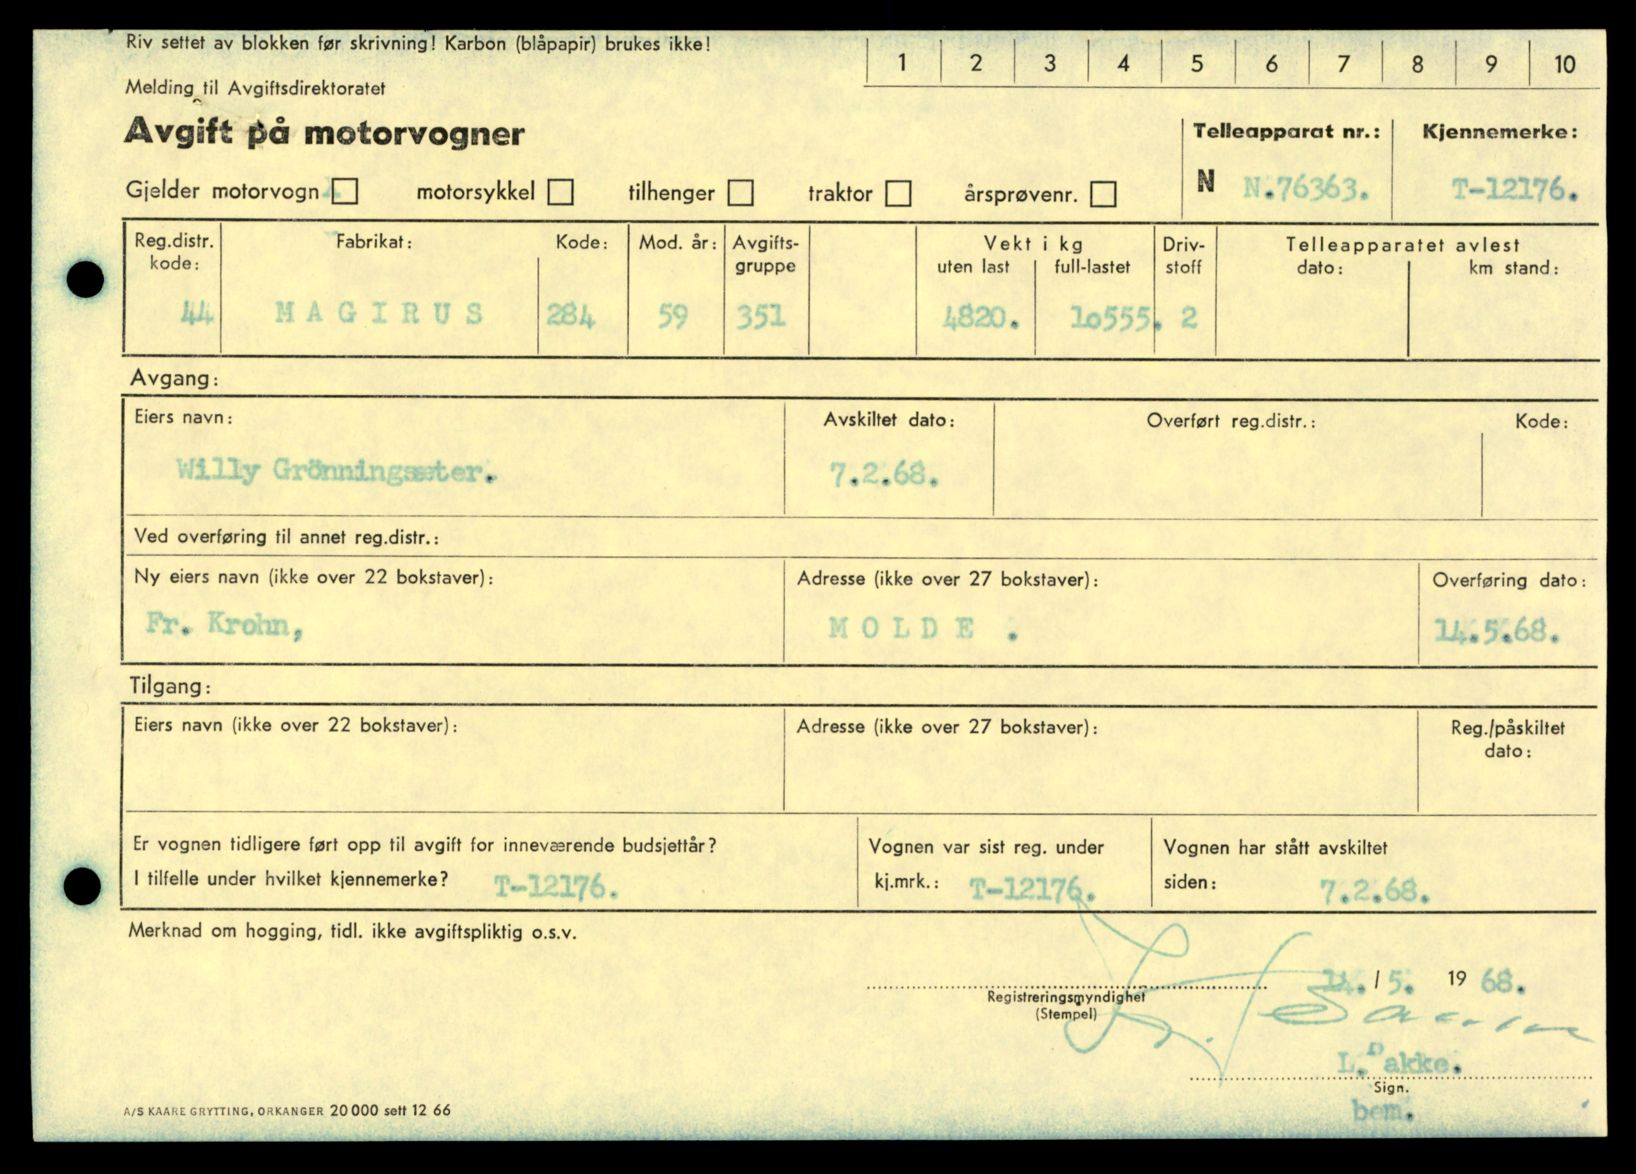 Riv settet av blokken før skrivning! Karbon (blåpapir) brukes ikke!
1 2 3 4 5 6 7 8 9 10
Melding til Avgiftsdirektoratet
Avgift på motorvogner
Telleapparat nr.: Kjennemerke:
N N.76363. T-12176.
Gjelder motorvogn motorsykkel tilhenger traktor årsprøvenr.
Reg.distr. kode: Fabrikat: Kode: Mod. år: Avgiftsgruppe Vekt i kg uten last full-lastet Drivstoff Telleapparatet avlest dato: km stand:
44 MAGIRUS 284 59 351 4820. 1o555. 2
Avgang:
Eiers navn: Avskiltet dato: Overført reg.distr.: Kode:
Willy Grönningsæter. 7.2.68.
Ved overføring til annet reg.distr.:
Ny eiers navn (ikke over 22 bokstaver): Adresse (ikke over 27 bokstaver): Overføring dato:
Fr. Krohn, MOLDE . 14.5.68.
Tilgang:
Eiers navn (ikke over 22 bokstaver): Adresse (ikke over 27 bokstaver): Reg./påskiltet dato:
Er vognen tidligere ført opp til avgift for inneværende budsjettår? Vognen var sist reg. under Vognen har stått avskiltet
I tilfelle under hvilket kjennemerke? T-12176. kj.mrk.: T-12176. siden: 7.2.68.
Merknad om hogging, tidl. ikke avgiftspliktig o.s.v.
14. / 5. 19 68.
Registreringsmyndighet
(Stempel)
L. Bakke.
Sign.
bem.
A/S KAARE GRYTTING, ORKANGER 20 000 sett 12 66